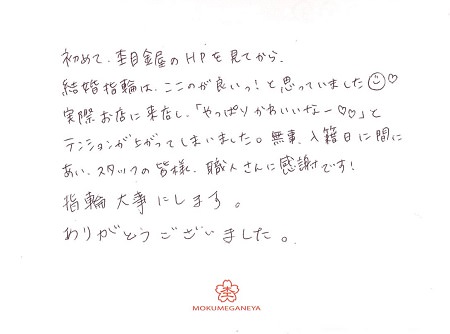 初めて、杢目金屋のHPを見てから、
結婚指輪は、ここのが良いっ!と思っていました☺♡
実際お店に来店し、「やっぱりかわいいなー♡♡」と
テンションが上がってしまいました。無事、入籍日に間に
あい、スタッフの皆様、職人さんに感謝です!
指輪大事にします。
ありがとうございました。
杢
MOKUMEGANEYA